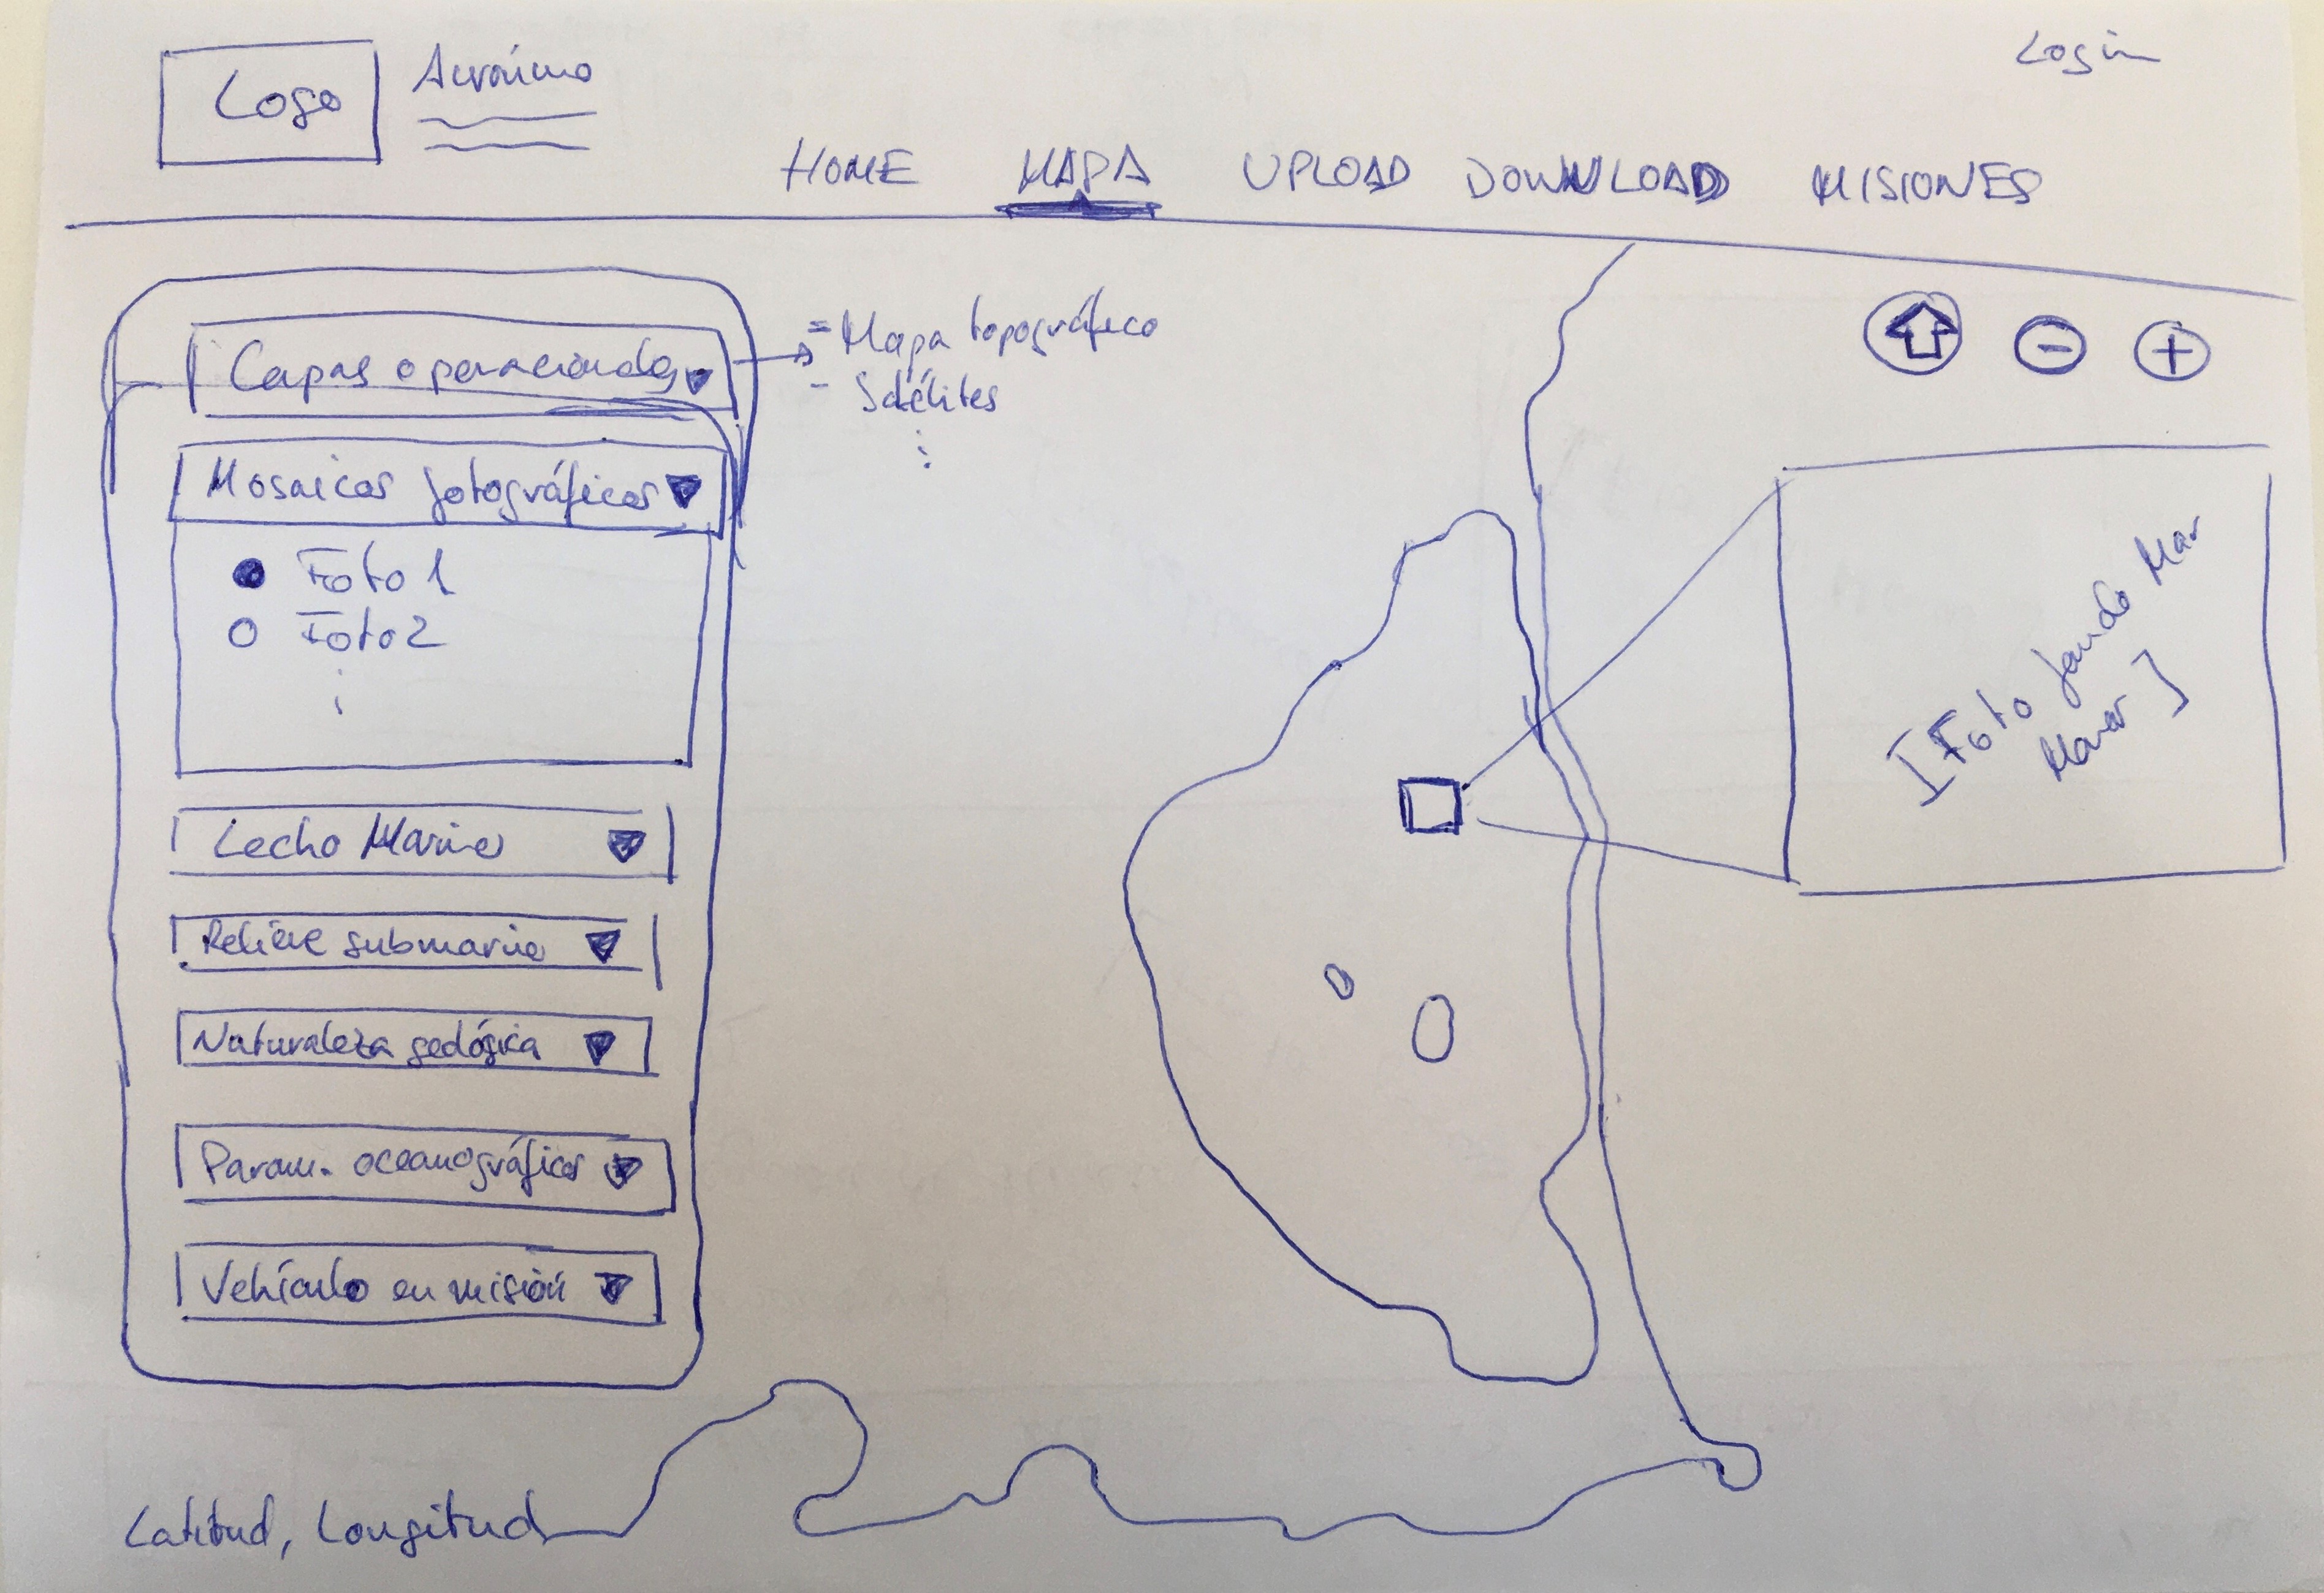 Logo
Acrónimo
Login
HOME MAPA UPLOAD DOWNLOAD MISIONES
Capas operacionales
- Mapa topográfico
- Satélites
Mosaicos fotográficos
Foto 1
Foto 2
Lecho Marino
Relieve submarino
Naturaleza geológica
Param. oceanográficos
Vehículo en misión
[Foto fondo Mar
Menor]
Latitud, Longitud